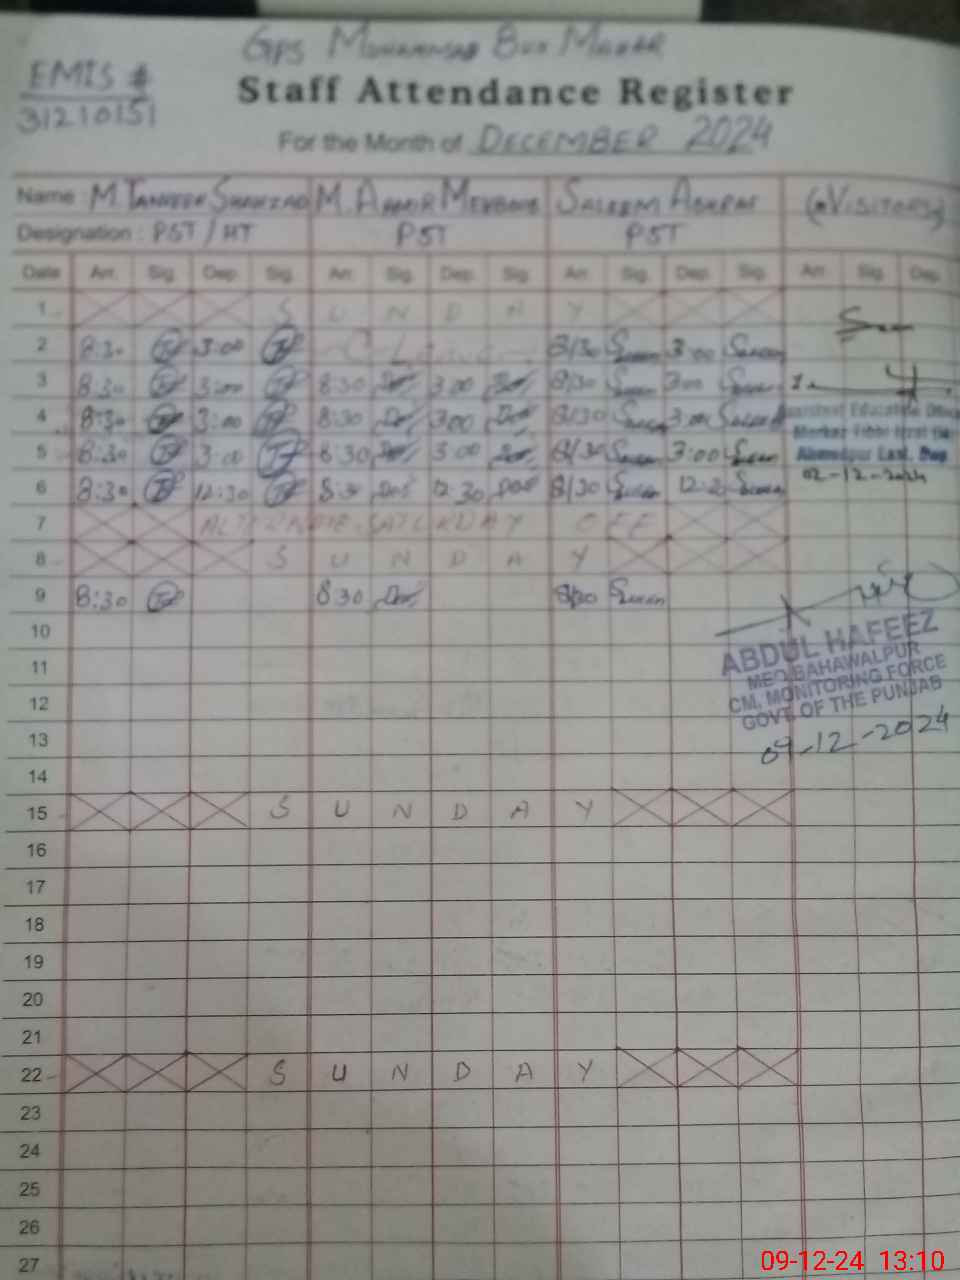 GPS MUHAMMAD BUX MAHAR
EMIS #
31210151
Staff Attendance Register
For the Month of DECEMBER 2024
Name : M. TANVEER SHAHZAD M. AAMIR MEHBOOB SALEEM ASHRAF (VISITORS)
Designation : PST / HT PST PST
Date Arr. Sig. Dep. Sig. Arr. Sig. Dep. Sig. Arr. Sig. Dep. Sig. Arr. Sig. Dep.
1 S U N D A Y
2 8:30 3:00 C Leave 8/30 3:00
3 8:30 3:00 8:30 3:00 8/30 3:00
4 8:30 3:00 8:30 3:00 8/30 3:00
Assistant Education Officer
5 8:30 3:00 8:30 3:00 8/30 3:00
Markaz
Ahmedpur East,
6 8:30 12:30 8:30 12:30 8/30
02-12-2024
7 ALTERNATE SATURDAY OFF
8 S U N D A Y
9 8:30 8:30 8/30
10
ABDUL HAFEEZ
11
MEO BAHAWALPUR
CM, MONITORING FORCE
12
GOVT. OF THE PUNJAB
13
09-12-2024
14
15 S U N D A Y
16
17
18
19
20
21
22 S U N D A Y
23
24
25
26
27
09-12-24 13:10